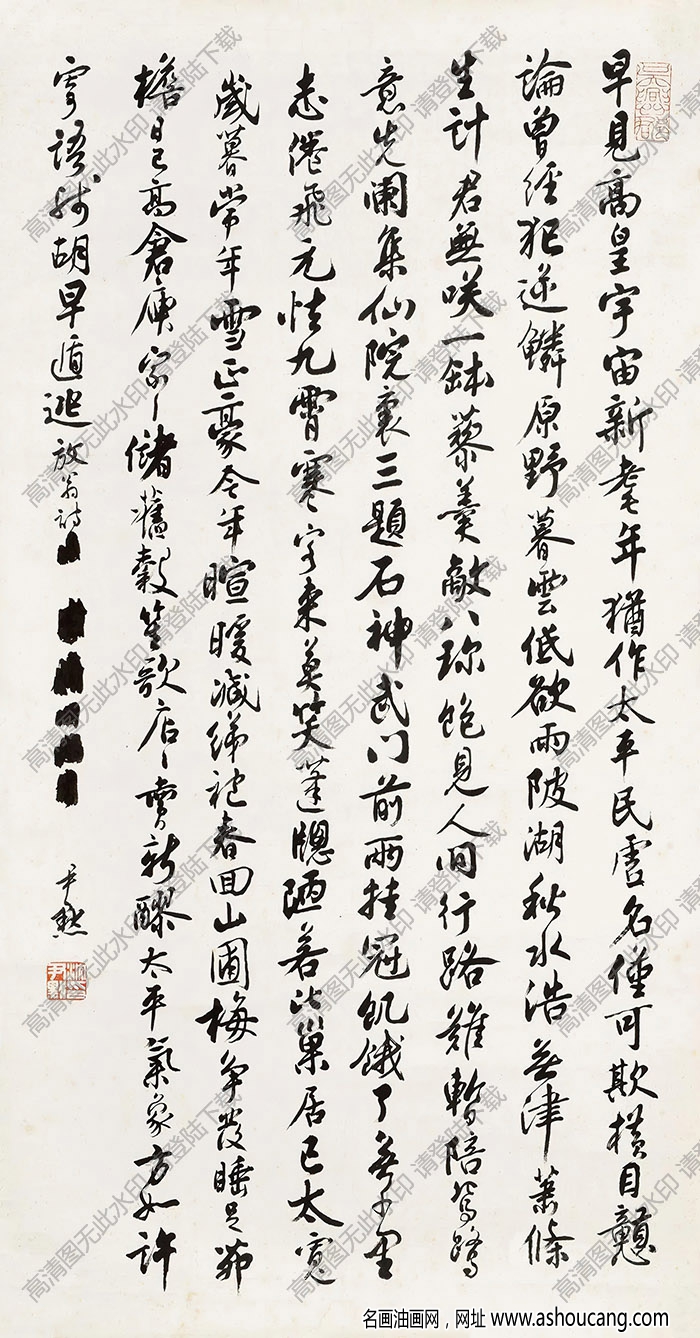 早見高皇宇宙新耄年猶作太平民虛名僅可欺橫目戇
論曾經犯逆鱗原野暮雲低欲雨陂湖秋水浩無津蕭條
生計君無咲一缽藜羹敵八珍飽見人間行路難暫陪鴛鷺
意先闌集仙院裏三題石神武門前兩挂冠飢餓了無千里
志倦飛元怯九霄寒客來莫笑蓬牕陋若比巢居已太寬
歲暮常年雪正豪今年暄暖減綈袍春回山圃梅争發睡足茆
檐日已高倉庾家〻儲舊穀笙歌店〻賣新醪太平氣象方如許
寄語殘胡早遁逃 放翁詩
尹默
沈尹默
高清图无此水印 请登陆下载
名画油画网，网址 www.ashoucang.com